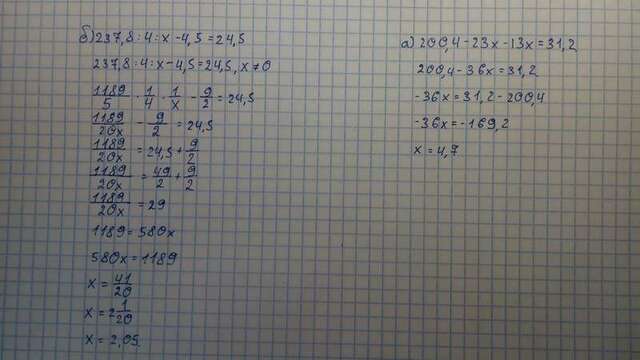 б) 237,8 : 4 : x - 4,5 = 24,5
237,8 : 4 : x - 4,5 = 24,5, x ≠ 0
1189/5 · 1/4 · 1/x - 9/2 = 24,5
1189/20x - 9/2 = 24,5
1189/20x = 24,5 + 9/2
1189/20x = 49/2 + 9/2
1189/20x = 29
1189 = 580x
580x = 1189
x = 41/20
x = 2 1/20
x = 2,05
а) 200,4 - 23x - 13x = 31,2
200,4 - 36x = 31,2
-36x = 31,2 - 200,4
-36x = -169,2
x = 4,7